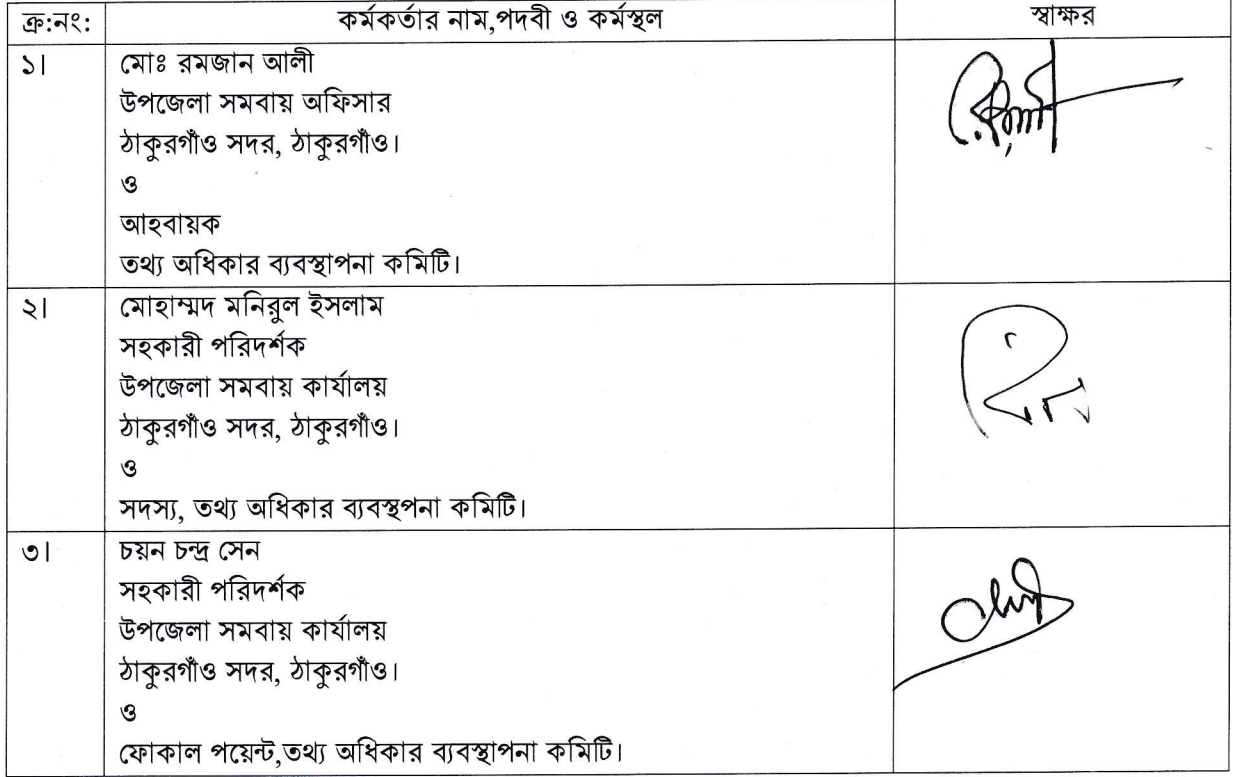 ক্র:নং: কর্মকর্তার নাম,পদবী ও কর্মস্থল স্বাক্ষর
১। মোঃ রমজান আলী
উপজেলা সমবায় অফিসার
ঠাকুরগাঁও সদর, ঠাকুরগাঁও।
ও
আহবায়ক
তথ্য অধিকার ব্যবস্থাপনা কমিটি।
২। মোহাম্মদ মনিরুল ইসলাম
সহকারী পরিদর্শক
উপজেলা সমবায় কার্যালয়
ঠাকুরগাঁও সদর, ঠাকুরগাঁও।
ও
সদস্য, তথ্য অধিকার ব্যবস্থপনা কমিটি।
৩। চয়ন চন্দ্র সেন
সহকারী পরিদর্শক
উপজেলা সমবায় কার্যালয়
ঠাকুরগাঁও সদর, ঠাকুরগাঁও।
ও
ফোকাল পয়েন্ট,তথ্য অধিকার ব্যবস্থাপনা কমিটি।